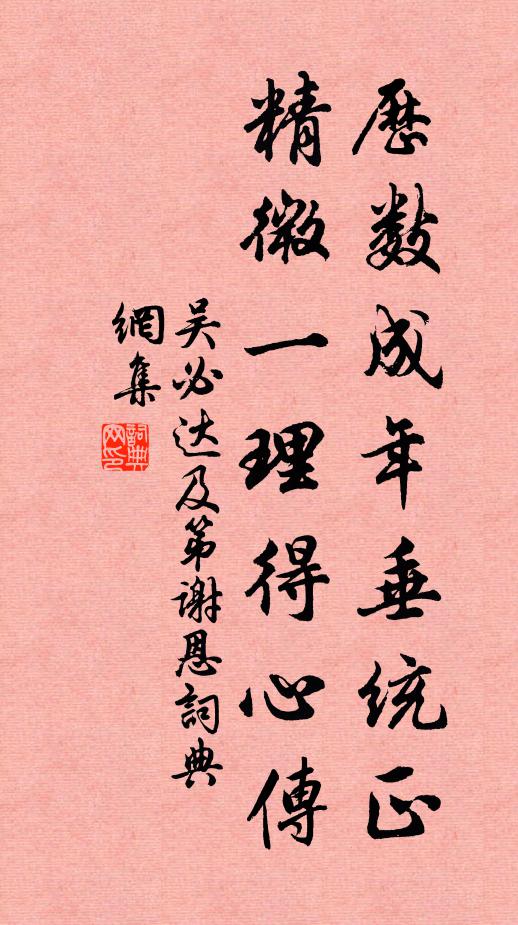 歷数成年垂统正
精微一理得心傳
吴必达及第谢恩詞典
網集
詞典
网印